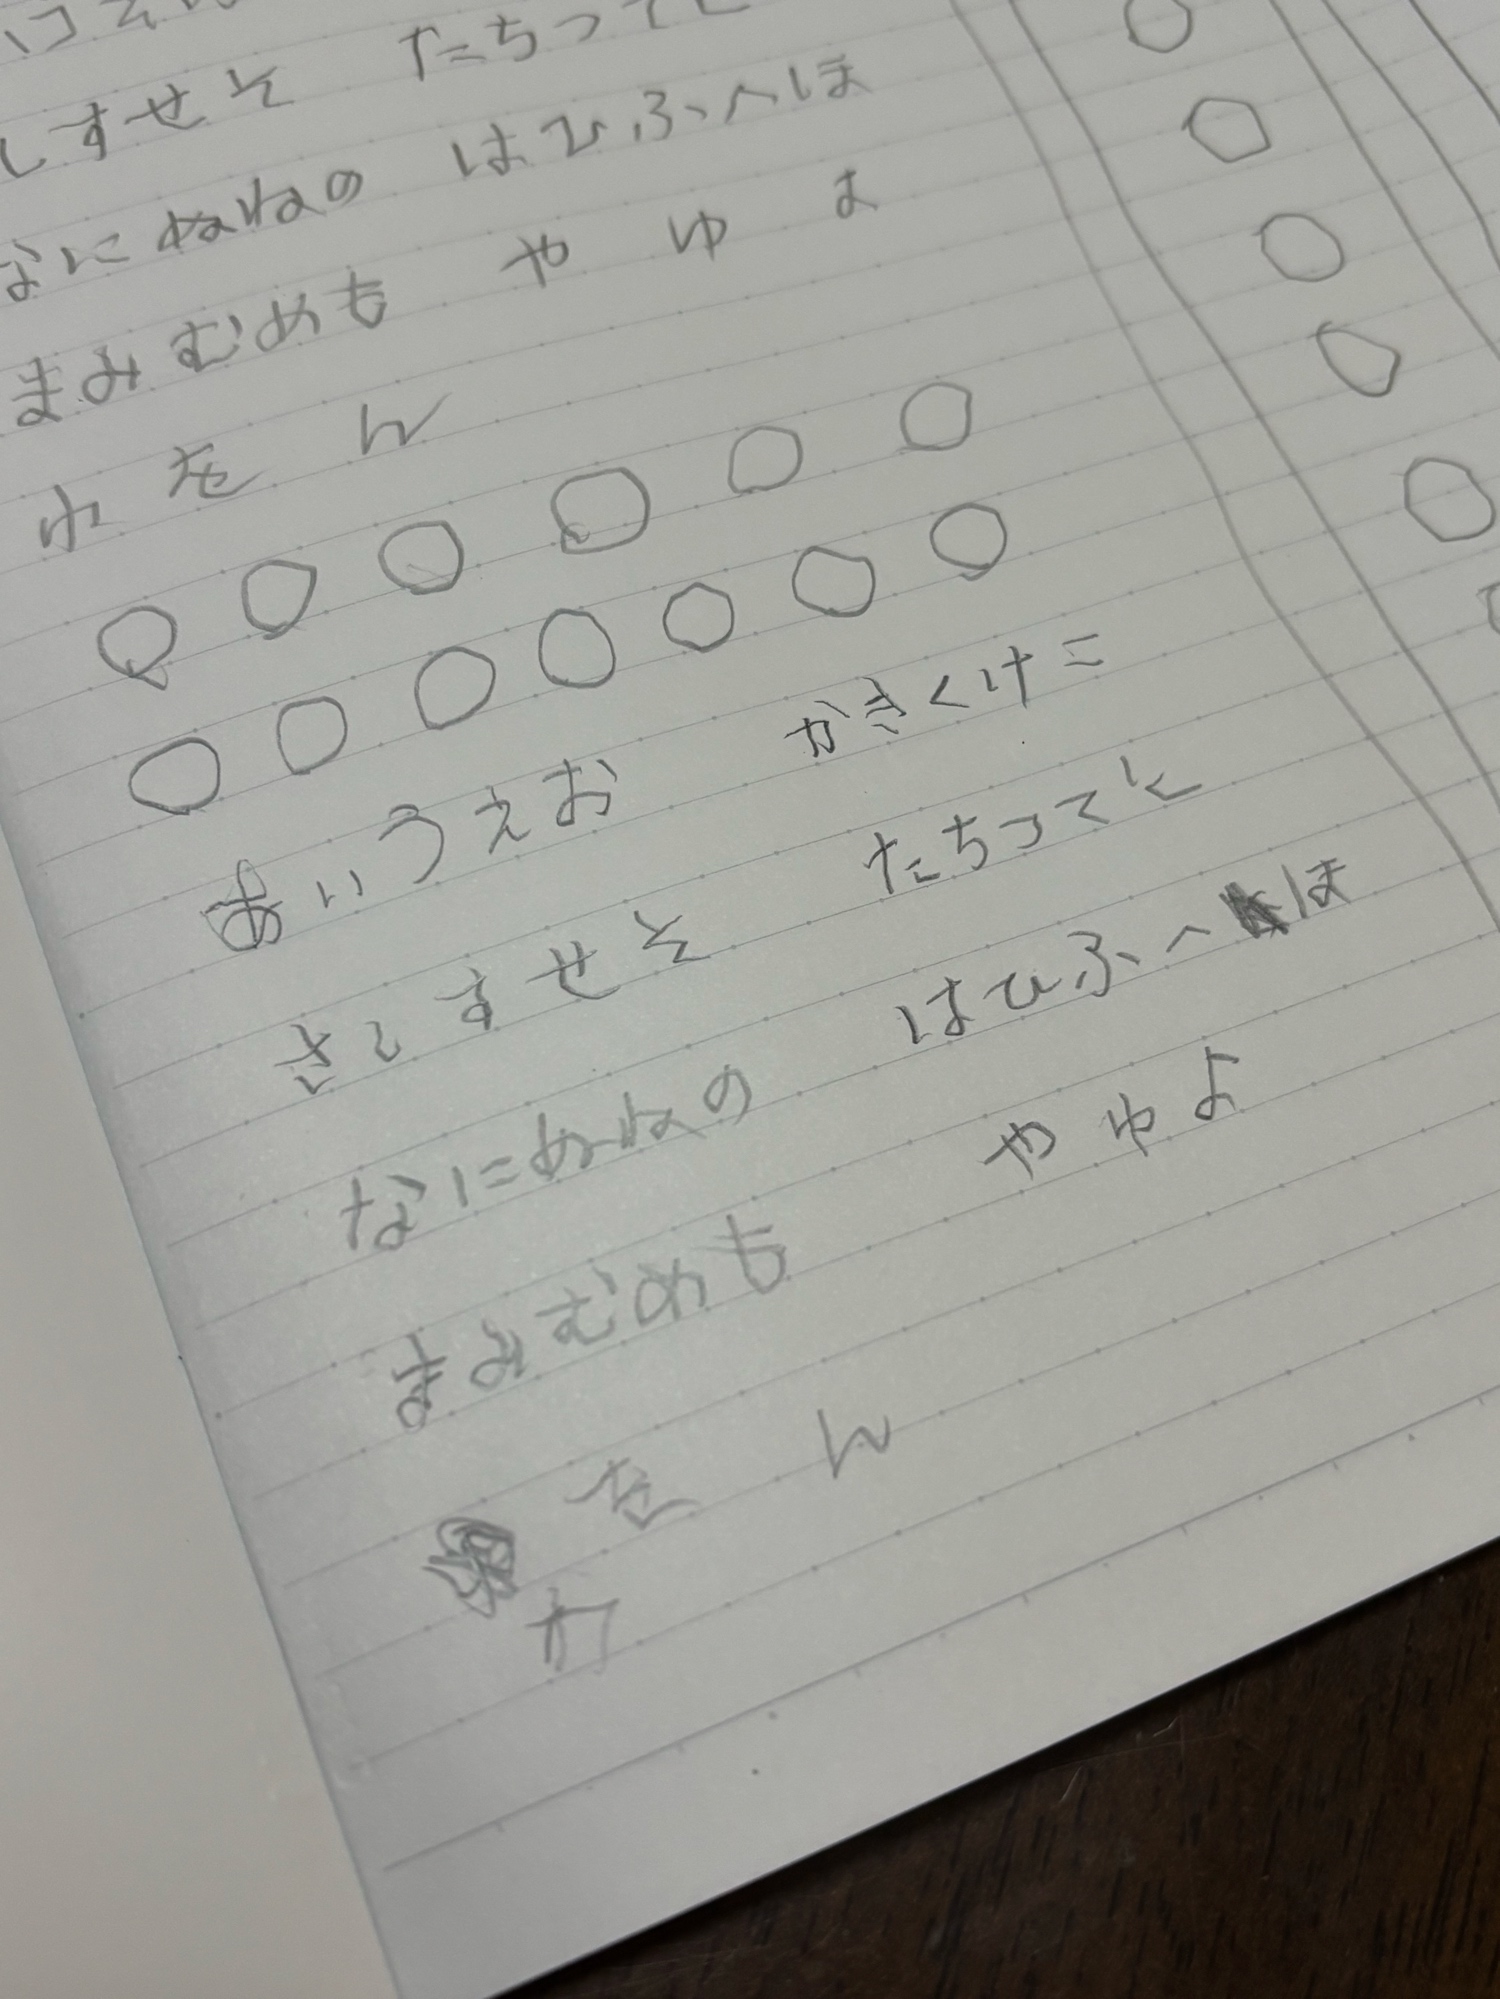 しすせそ たちつてと
なにぬねの はひふへほ
まみむめも や ゆ よ
わ を ん
あいうえお かきくけこ
さしすせそ たちつてと
なにぬねの はひふへほ
まみむめも やゆよ
を ん
わ